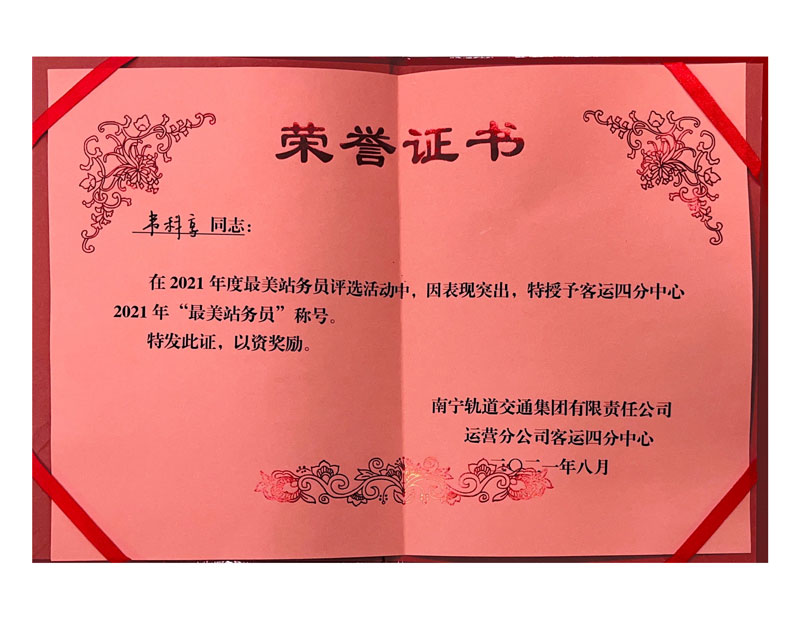 荣誉证书
韦科享 同志：
在 2021 年度最美站务员评选活动中，因表现突出，特授予客运四分中心
2021 年“最美站务员”称号。
特发此证，以资奖励。
南宁轨道交通集团有限责任公司
运营分公司客运四分中心
二〇二一年八月